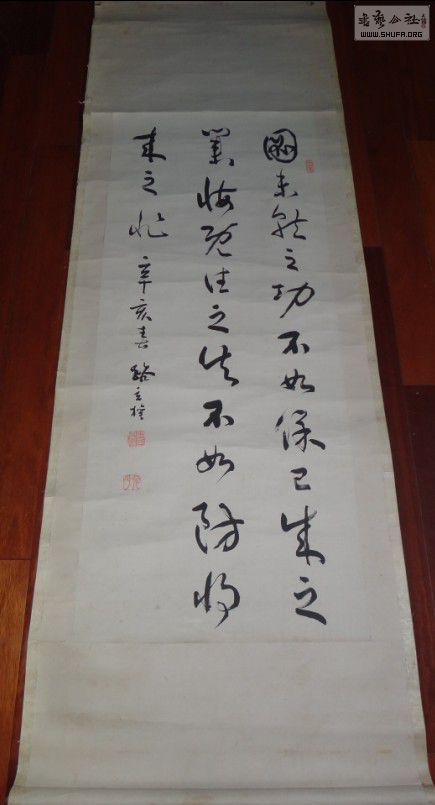 圖未就之功不如保已成之
業悔既往之失不如防將
來之非 辛亥春
書艺公社
WWW.SHUFA.ORG